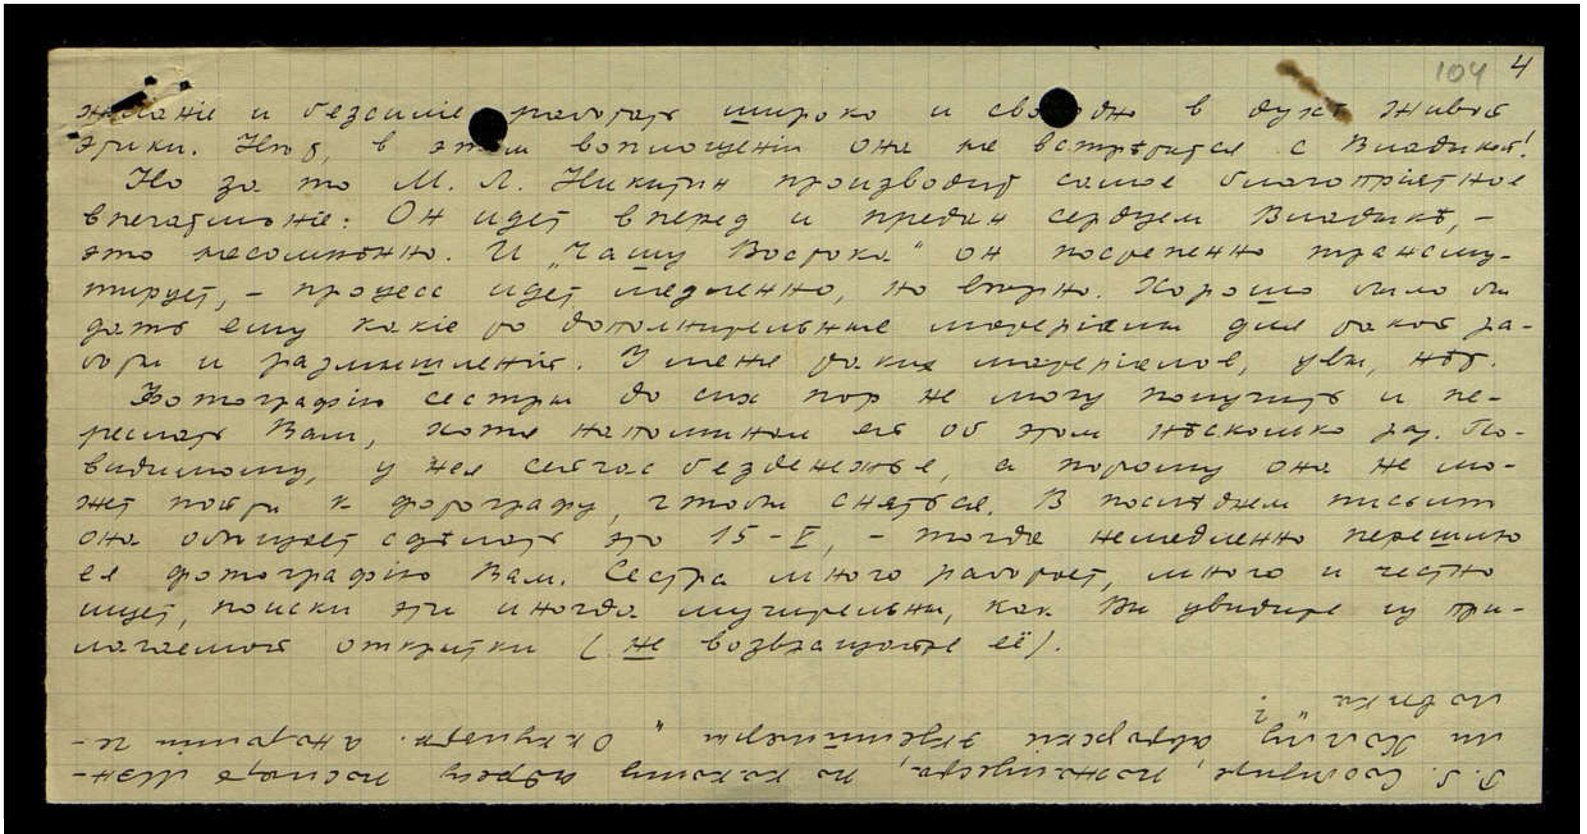 104 4
желаніе и безсиліе работать широко и свободно в духе Живой
Этики. Нет, в этом воплощеніи она не встретится с Владыкой!
Но за то М. Л. Никитин производит самое благопріятное
впечатленіе: Он идет вперед и предан сердцем Владыкѣ, –
это несомнѣнно. И „Чашу Востока“ он постепенно трансму-
тирует, – процесс идет медленно, но вѣрно. Хорошо было бы
дать ему какіе то дополнительные матеріалы для такой ра-
боты и размышленія. У меня таких матеріалов, увы, нѣт.
Фотографію сестры до сих пор не могу получить и пе-
реслать Вам, хотя напоминаю ей об этом нѣсколько раз. По-
видимому, у нея сейчас безденежье, а потому она не мо-
жет пойти к фотографу, чтобы сняться. В послѣднем письмѣ
она обѣщает сдѣлать это 15-V, – тогда немедленно перешлю
ея фотографію Вам. Сестра много работает, много и честно
ищет, поиски эти иногда мучительны, как Вы увидите из при-
лагаемой открытки (не возвращайте её).
P. S. Сообщите, пожалуйста, по какому адресу послать Мэн-
ли Холлу авторскій экземпляр „Оккультн. анатоміи че-
ловѣка“?